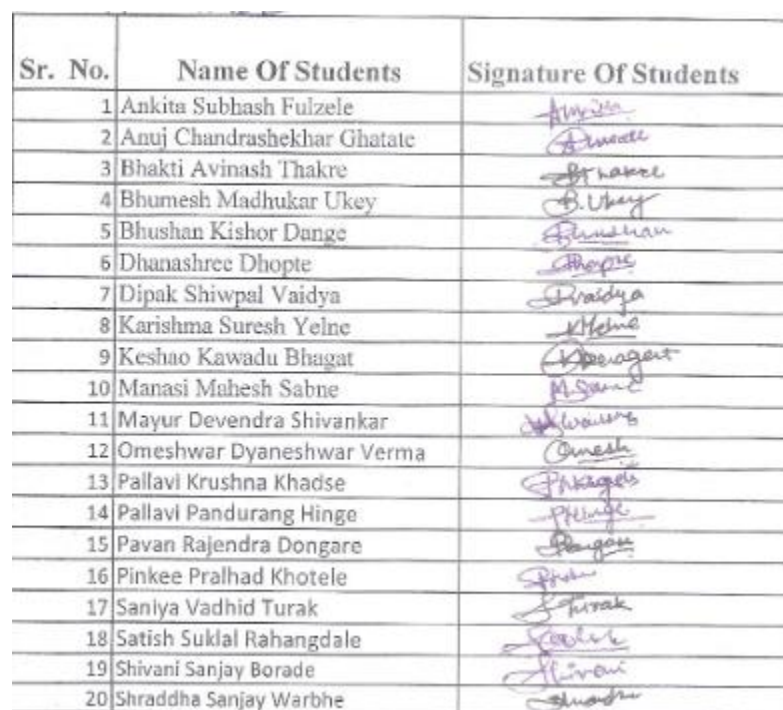 Sr. No. Name Of Students Signature Of Students
1 Ankita Subhash Fulzele
2 Anuj Chandrashekhar Ghatate
3 Bhakti Avinash Thakre BThakre
4 Bhumesh Madhukar Ukey B.Ukey
5 Bhushan Kishor Dange Bhushan
6 Dhanashree Dhopte
7 Dipak Shiwpal Vaidya DVaidya
8 Karishma Suresh Yelne
9 Keshao Kawadu Bhagat
10 Manasi Mahesh Sabne
11 Mayur Devendra Shivankar
12 Omeshwar Dyaneshwar Verma Omesh
13 Pallavi Krushna Khadse
14 Pallavi Pandurang Hinge PHinge
15 Pavan Rajendra Dongare
16 Pinkee Pralhad Khotele
17 Saniya Vadhid Turak STurak
18 Satish Suklal Rahangdale
19 Shivani Sanjay Borade Shivani
20 Shraddha Sanjay Warbhe